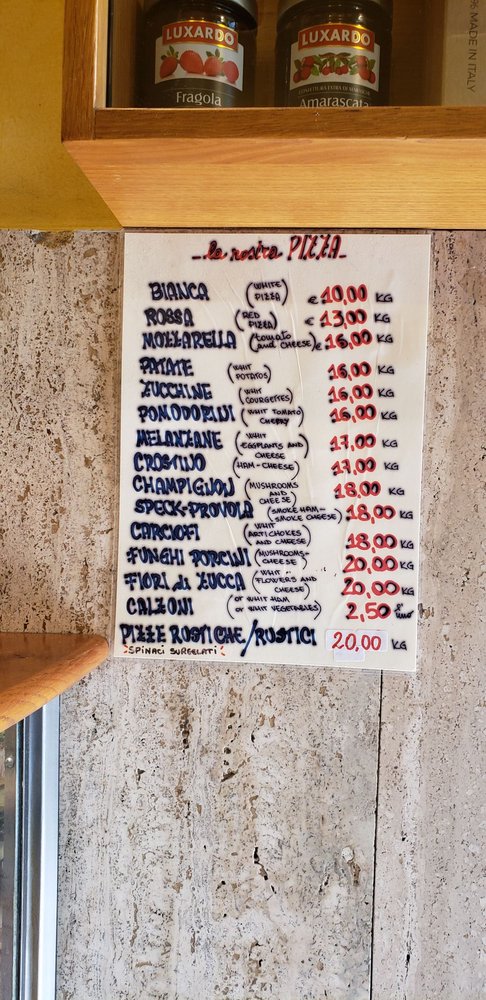 LUXARDO LUXARDO
Fragola
CONFETTURA EXTRA DI MARASCHE
Amarascata
MADE IN ITALY
le nostre PIZZA
BIANCA (WHITE PIZZA) € 10,00 KG
ROSSA (RED PIZZA) € 13,00 KG
MOZZARELLA (tomato and CHEESE) € 16,00 KG
PATATE (WHIT POTATOS) 16,00 KG
ZUCCHINE (WHIT COURGETTES) 16,00 KG
POMODORINI (WHIT TOMATO CHERRY) 16,00 KG
MELANZANE (WHIT EGGPLANTS AND CHEESE) 17,00 KG
CROSTINO (HAM-CHEESE) 17,00 KG
CHAMPIGNON (MUSHROOMS AND CHEESE) 18,00 KG
SPECK-PROVOLA (SMOKE HAM-SMOKE CHEESE) 18,00 KG
CARCIOFI (WHIT ARTICHOKES AND CHEESE) 18,00 KG
FUNGHI PORCINI (MUSHROOMS-CHEESE) 20,00 KG
FIORI di ZUCCA (WHIT FLOWERS AND CHEESE) 20,00 KG
CALZONI (OR WHIT HAM OR WHIT VEGETABLES) 2,50 l'uno
PIZZE ROSTICHE/RUSTICI 20,00 KG
SPINACI SURGELATI